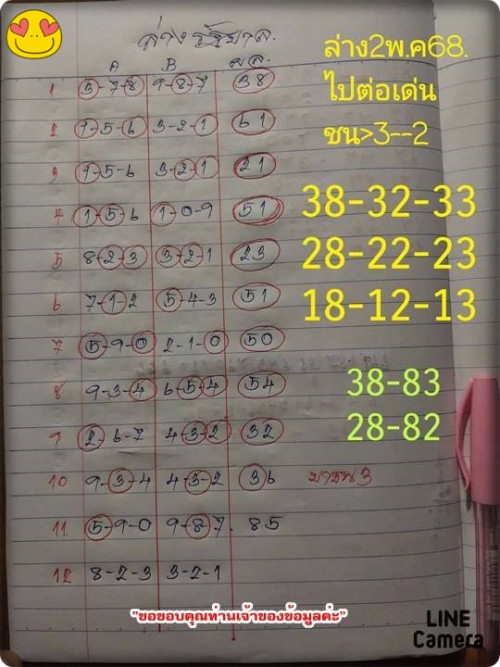 ล่างรัฐบาล.
A B ผล.
1 3-7-8 9-8-7 38
2 1-5-6 3-2-1 61
3 1-5-6 3-2-1 21
4 1-5-6 1-0-9 51
5 8-2-3 3-2-1 23
6 7-1-2 5-4-3 51
7 5-9-0 2-1-0 50
8 9-3-4 6-5-4 54
9 2-6-7 4-3-2 32
10 9-3-4 4-3-2 36 มาบน 3
11 5-9-0 9-8-7. 85
12 8-2-3 3-2-1
ล่าง2พ.ค68.
ไปต่อเด่น
ชน>3--2
38-32-33
28-22-23
18-12-13
38-83
28-82
"ขอขอบคุณท่านเจ้าของข้อมูลค่ะ"
LINE
Camera